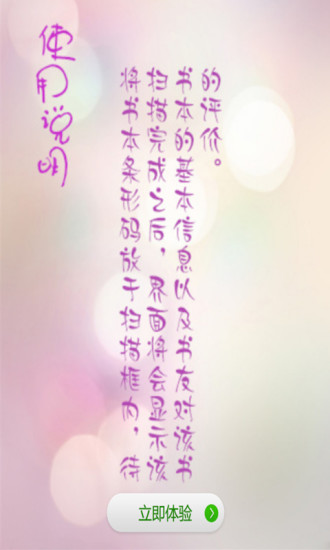 使用说明
将书本条形码放于扫描框内，待
扫描完成之后，界面将会显示该
书本的基本信息以及书友对该书
的评价。
立即体验